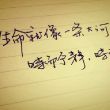 生命就像一条大河
时而宁静 时